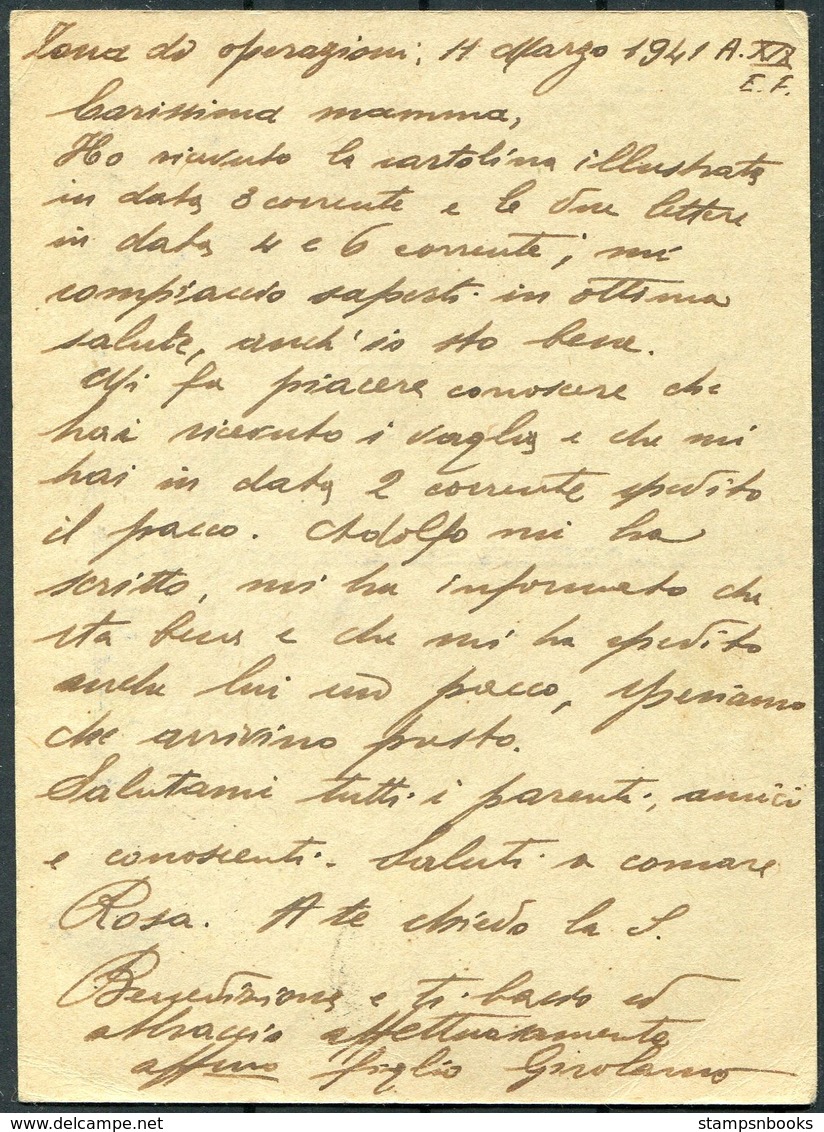 Zona di operazioni, 11 Marzo 1941 A. XIX
E. F.
Carissima mamma,
Ho ricevuto la cartolina illustrata
in data 3 corrente e le due lettere
in data 4 e 6 corrente; mi
compiaccio saperti in ottima
salute, anch'io sto bene.
Mi fa piacere conoscere che
hai ricevuto i vaglia e che mi
hai in data 2 corrente spedito
il pacco. Adolfo mi ha
scritto, mi ha informato che
sta bene e che mi ha spedito
anche lui un pacco, speriamo
che arrivino presto.
Salutami tutti i parenti, amici
e conoscenti. Saluti a comare
Rosa. A te chiedo la S.
Benedizione e ti bacio ed
abbraccio affettuosamente
aff.mo figlio Girolamo
stampsnbooks